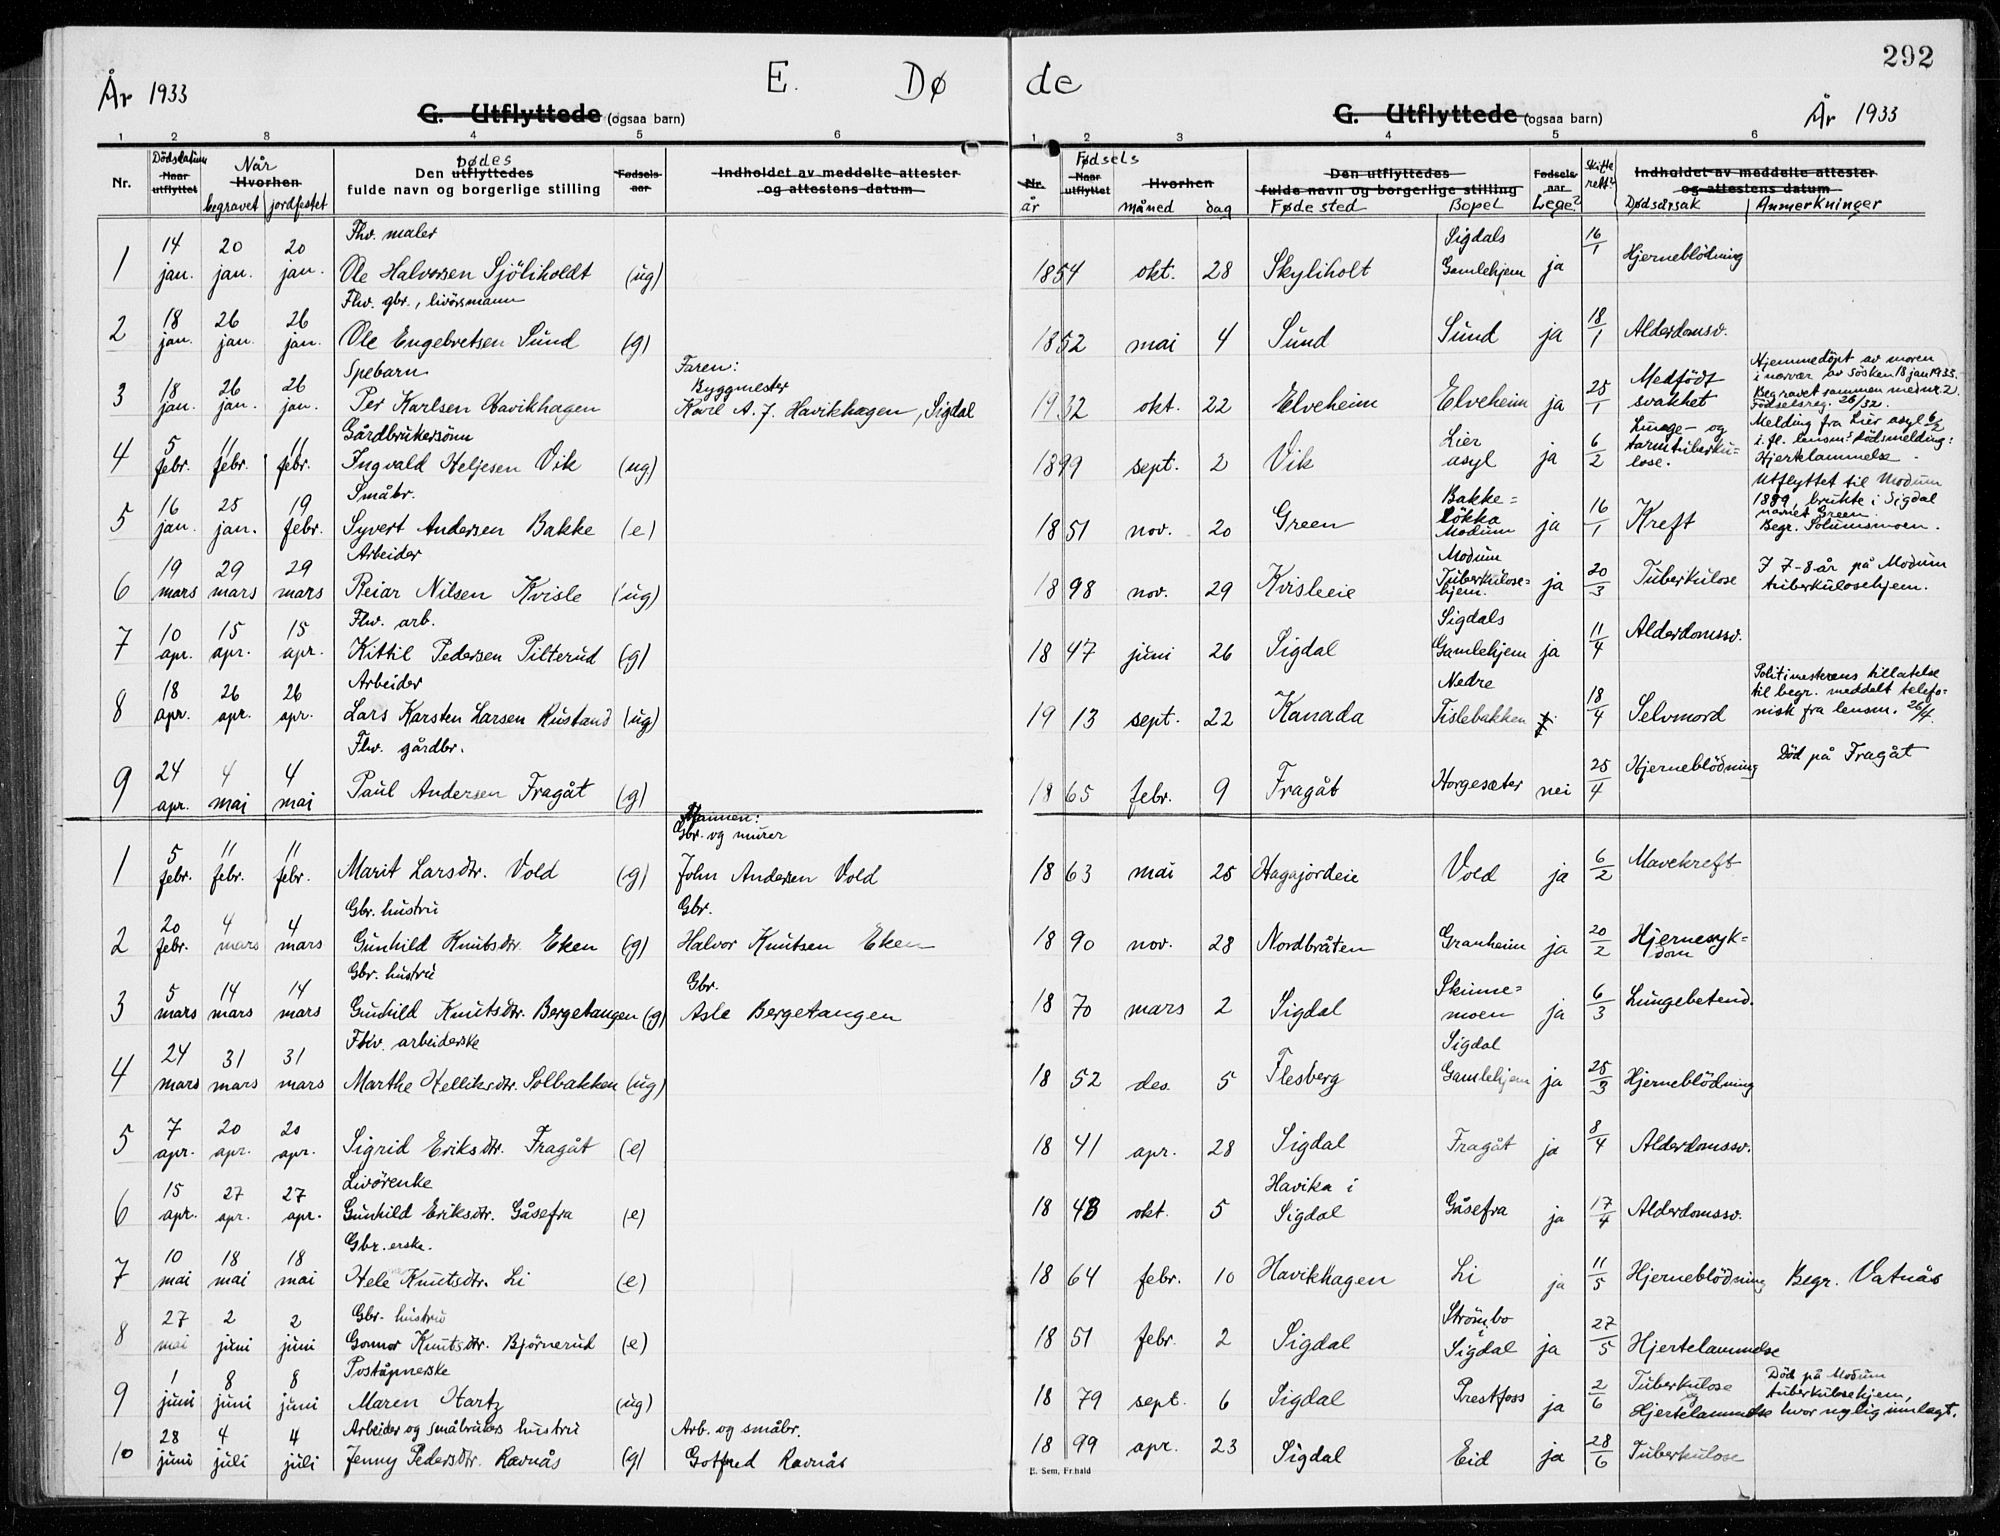 292
År 1933 E. Dø de År 1933
G. Utflyttede (ogsaa barn) G. Utflyttede (ogsaa barn)
1 2 3 4 5 6 1 2 3 4 5 6
Nr. Dødsdatum Naar utflyttet Når Hvorhen begravet jordfestet Den utflyttedes Dødes fulde navn og borgerlige stilling Fødsels aar Indholdet av meddelte attester og attestens datum
Nr. år Fødsels Naar utflyttet Hvorhen måned dag Den utflyttedes fulde navn og borgerlige stilling Fødested Bopel Fødsels aar Lege? Skifterett? Indholdet av meddelte attester og attestens datum Dødsårsak Anmerkninger
Fhv. maler
1 14 jan. 20 jan. 20 jan. Ole Halvorsen Sjöliholdt (ug) 1854 okt. 28 Skyliholt Sigdals Gamlehjem ja 16/1 Hjerneblödning
Fhv. gbr., livörsmann
2 18 jan. 26 jan. 26 jan. Ole Engebretsen Sund (g) 1852 mai 4 Sund Sund ja 18/1 Alderdomsv.
Spebarn
3 18 jan. 26 jan. 26 jan. Per Karlsen Havikhagen Faren: Byggmester Karl A. J. Havikhagen, Sigdal 1932 okt. 22 Elveheim Elveheim ja 25/1 Medfödt svakhet Hjemmedöpt av moren i nærvær av sösken 18 jan 1933. Begravet sammen med nr. 2 Födselsreg. 26/32.
Gårdbrukersönn
4 5 febr. 11 febr. 11 febr. Ingvald Heljesen Vik (ug) 1899 sept. 2 Vik Lier asyl ja 6/2 Lunge- og tarmtuberkulose. Melding fra Lier asyl 6/2 i. fl. lensm.s dödsmelding: Hjertelammelse.
Småbr.
5 16 jan. 25 jan. 19 febr. Syvert Andersen Bakke (e) 1851 nov. 20 Green Bakke= lökka Modum ja 16/1 Kreft Utflyttet til Modum 1889, brukte i Sigdal navnet Green. Begr. Solumsmoen.
Arbeider
6 19 mars 29 mars 29 mars Reiar Nilsen Kvisle (ug) 1898 nov. 29 Kvisleeie Modum Tuberkulose= hjem. ja 20/3 Tuberkulose I 7-8 år på Modum tuberkulosehjem.
Fhv. arb.
7 10 apr. 15 apr. 15 apr. Kittil Pedersen Pilterud (g) 1847 juni 26 Sigdal Sigdals Gamlehjem ja 11/4 Alderdomssv.
Arbeider
8 18 apr. 26 apr. 26 apr. Lars Karsten Larsen Rustand (ug) 1913 sept. 22 Kanada Nedre Tislebakken 18/4 Selvmord Politimesterens tillatelse til begr. meddelt telefo= nisk fra lensm. 26/4.
Fhv. gårdbr.
9 24 apr. 4 mai 4 mai Paul Andersen Fragåt (g) 1865 febr. 9 Fragåt Horgesæter nei 25/4 Hjerneblödning Död på Fragåt
1 5 febr. 11 febr. 11 febr. Marit Larsdtr. Vold (g) Mannen: Gbr. og murer John Andersen Vold 1863 mai 25 Hagajordeie Vold ja 6/2 Mavekreft
Gbr. hustru
2 20 febr. 4 mars 4 mars Gunhild Knutsdtr. Eken (g) Gbr. Halvor Knutsen Eken 1890 nov. 28 Nordbråten Granheim ja 20/2 Hjernesyk= dom
Gbr. hustru
3 5 mars 14 mars 14 mars Gunhild Knutsdtr. Bergetangen (g) Gbr. Asle Bergetangen 1870 mars 2 Sigdal Skinne= moen ja 6/3 Lungebetend.
Fhv. arbeiderske
4 24 mars 31 mars 31 mars Marthe Helliksdtr. Solbakken (ug) 1852 des. 5 Flesberg Sigdal Gamlehjem ja 25/3 Hjerneblödning
5 7 apr. 20 apr. 20 apr. Sigrid Eriksdtr. Fragåt (e) 1841 apr. 28 Sigdal Fragåt ja 8/4 Alderdomssv.
Livörenke
6 15 apr. 27 apr. 27 apr. Gunhild Eriksdtr. Gåsefra (e) 1848 okt. 5 Havika i Sigdal Gåsefra ja 17/4 Alderdomssv.
Gbr.erske.
7 10 mai 18 mai 18 mai Hele Knutsdtr. Li (e) 1864 febr. 10 Havikhagen Li ja 11/5 Hjerneblödning Begr. Vatnås
Gbr. hustru
8 27 mai 2 juni 2 juni Gonnor Knutsdtr. Björnerud (e) 1851 febr. 2 Sigdal Strömbo i Sigdal ja 27/5 Hjertelammelse
Poståpnerske
9 1 juni 8 juni 8 juni Maren Hartz (ug) 1879 sept. 6 Sigdal Prestfoss ja 2/6 Tuberkulose og Hjertelammelse Död på Modum tuberkulosehjem, hvor nylig innlagt.
Arbeider og småbrukers hustru
10 28 juni 4 juli 4 juli Jenny Pedersdtr. Ravnås (g) Arb. og småbr. Gotfred Ravnås 1899 apr. 23 Sigdal Eid ja 28/6 Tuberkulose
E. Sem, Fr.hald